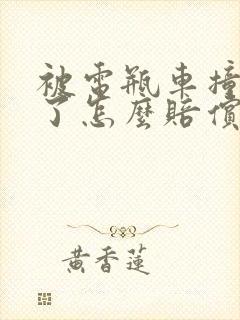 被電瓶車撞
了怎麼賠償
黃香蓮